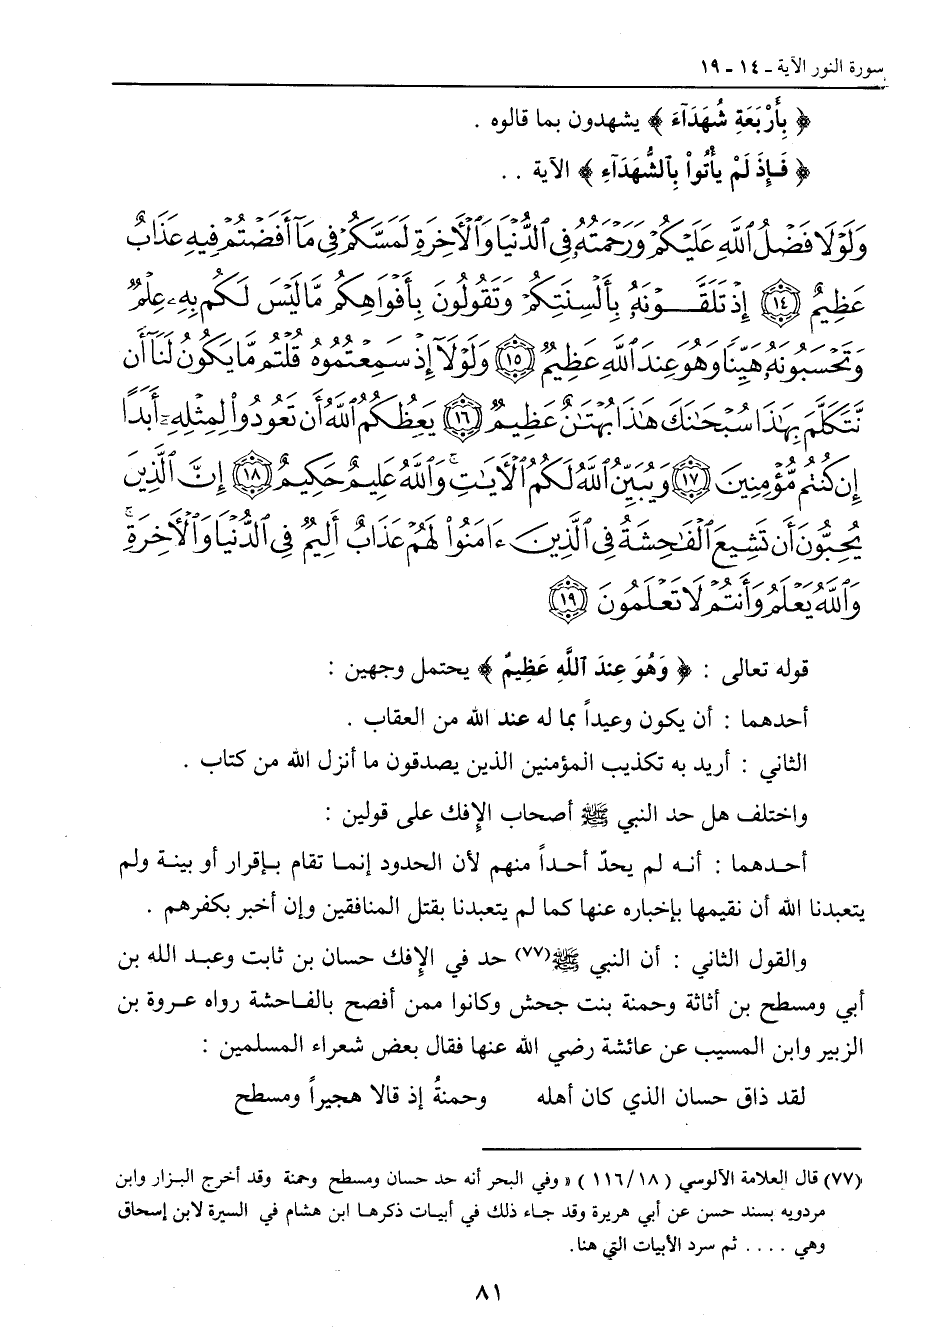 سورة النور الآية ـ ١٤ ـ ١٩
﴿ بِأَرْبَعَةِ شُهَدَآءَ ﴾ يشهدون بما قالوه .
﴿ فَإِذْ لَمْ يَأْتُواْ بِٱلشُّهَدَآءِ ﴾ الآية . .
وَلَوْلَا فَضْلُ ٱللَّهِ عَلَيْكُمْ وَرَحْمَتُهُۥ فِى ٱلدُّنْيَا وَٱلْأَخِرَةِ لَمَسَّكُمْ فِى مَآ أَفَضْتُمْ فِيهِ عَذَابٌ
عَظِيمٌ ١٤ إِذْ تَلَقَّوْنَهُۥ بِأَلْسِنَتِكُمْ وَتَقُولُونَ بِأَفْوَاهِكُم مَّا لَيْسَ لَكُم بِهِۦ عِلْمٌ
وَتَحْسَبُونَهُۥ هَيِّنًا وَهُوَ عِندَ ٱللَّهِ عَظِيمٌ ١٥ وَلَوْلَآ إِذْ سَمِعْتُمُوهُ قُلْتُم مَّا يَكُونُ لَنَآ أَن
نَّتَكَلَّمَ بِهَٰذَا سُبْحَٰنَكَ هَٰذَا بُهْتَٰنٌ عَظِيمٌ ١٦ يَعِظُكُمُ ٱللَّهُ أَن تَعُودُوا۟ لِمِثْلِهِۦٓ أَبَدًا
إِن كُنتُم مُّؤْمِنِينَ ١٧ وَيُبَيِّنُ ٱللَّهُ لَكُمُ ٱلْأَيَٰتِ وَٱللَّهُ عَلِيمٌ حَكِيمٌ ١٨ إِنَّ ٱلَّذِينَ
يُحِبُّونَ أَن تَشِيعَ ٱلْفَٰحِشَةُ فِى ٱلَّذِينَ ءَامَنُوا۟ لَهُمْ عَذَابٌ أَلِيمٌ فِى ٱلدُّنْيَا وَٱلْأَخِرَةِ
وَٱللَّهُ يَعْلَمُ وَأَنتُمْ لَا تَعْلَمُونَ ١٩
قوله تعالى : ﴿ وَهُوَ عِندَ ٱللَّهِ عَظِيمٌ ﴾ يحتمل وجهين :
أحدهما : أن يكون وعيداً بما له عند الله من العقاب .
الثاني : أريد به تكذيب المؤمنين الذين يصدقون ما أنزل الله من كتاب .
واختلف هل حد النبي ﷺ أصحاب الإفك على قولين :
أحدهما : أنه لم يحدّ أحداً منهم لأن الحدود إنما تقام بإقرار أو بينة ولم
يتعبدنا الله أن نقيمها بإخباره عنها كما لم يتعبدنا بقتل المنافقين وإن أخبر بكفرهم .
والقول الثاني : أن النبي ﷺ(٧٧) حد في الإفك حسان بن ثابت وعبد الله بن
أبي ومسطح بن أثاثة وحمنة بنت جحش وكانوا ممن أفصح بالفاحشة رواه عروة بن
الزبير وابن المسيب عن عائشة رضي الله عنها فقال بعض شعراء المسلمين :
لقد ذاق حسان الذي كان أهله وحمنةُ إذ قالا هجيراً ومسطح
(٧٧) قال العلامة الآلوسي ( ١١٦/١٨ ) « وفي البحر أنه حد حسان ومسطح وحمنة وقد أخرج البزار وابن
مردويه بسند حسن عن أبي هريرة وقد جاء ذلك في أبيات ذكرها ابن هشام في السيرة لابن إسحاق
وهي . . . . ثم سرد الأبيات التي هنا.
٨١